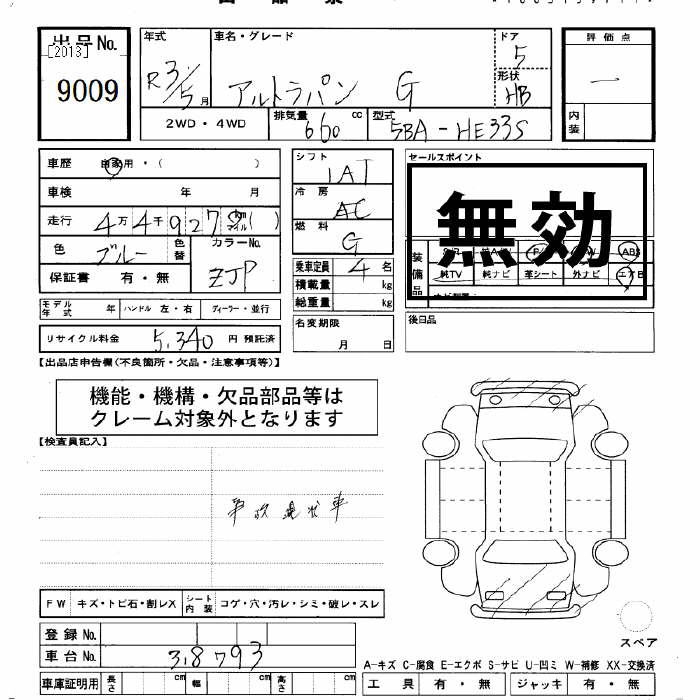 出品No.
[2013]
9009
年式
R3/5月
車名・グレード
アルトラパン G
ドア
5
形状
HB
評価点
一
内装
2WD・4WD
排気量
660 cc
型式
5BA-HE33S
車歴 自家用・( )
車検 年 月
走行 4万4千927 km マイル ( )
色 ブルー 色替
カラーNo.
ZJP
保証書 有・無
モデル年式 年 ハンドル 左・右 ディーラー・並行
リサイクル料金 5,340 円 預託済
シフト
IAT
冷房
AC
燃料
G
乗車定員 4 名
積載量 kg
総重量 kg
名変期限
月 日
セールスポイント
無効
装備品
ABS
純TV 純ナビ 革シート 外ナビ エアB
後日品
【出品店申告欄(不良箇所・欠品・注意事項等)】
機能・機構・欠品部品等は
クレーム対象外となります
【検査員記入】
事故現状車
FW キズ・トビ石・割レX シート内装 コゲ・穴・汚レ・シミ・破レ・スレ
登録No.
車台No. 38793
車庫証明用 長さ cm 幅 cm 高さ cm
スペア
A-キズ C-腐食 E-エクボ S-サビ U-凹ミ W-補修 XX-交換済
工具 有・無 ジャッキ 有・無